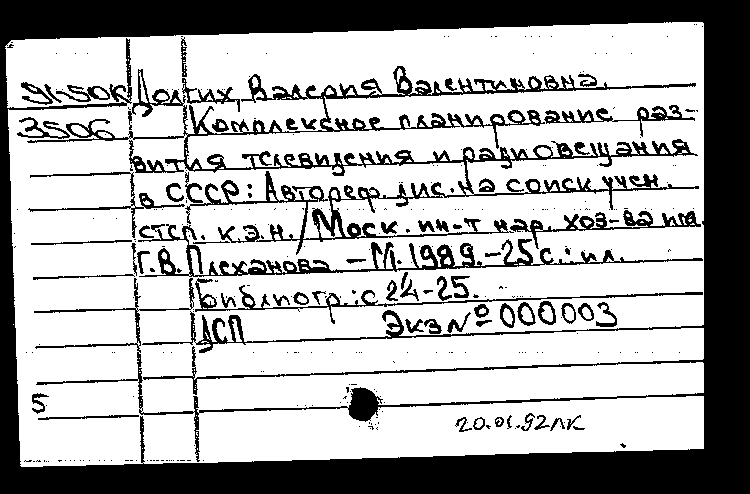 91-50К Долгих, Валерия Валентиновна.
3506 Комплексное планирование раз-
вития телевидения и радиовещания
в СССР: Автореф. дис. на соиск. учен.
степ. к.э.н. / Моск. ин-т нар. хоз-ва им.
Г.В. Плеханова – М. 1989. – 25 с.: ил.
Библиогр.: с 24-25.
ДСП Экз № 000003
5
20.01.92 ЛК